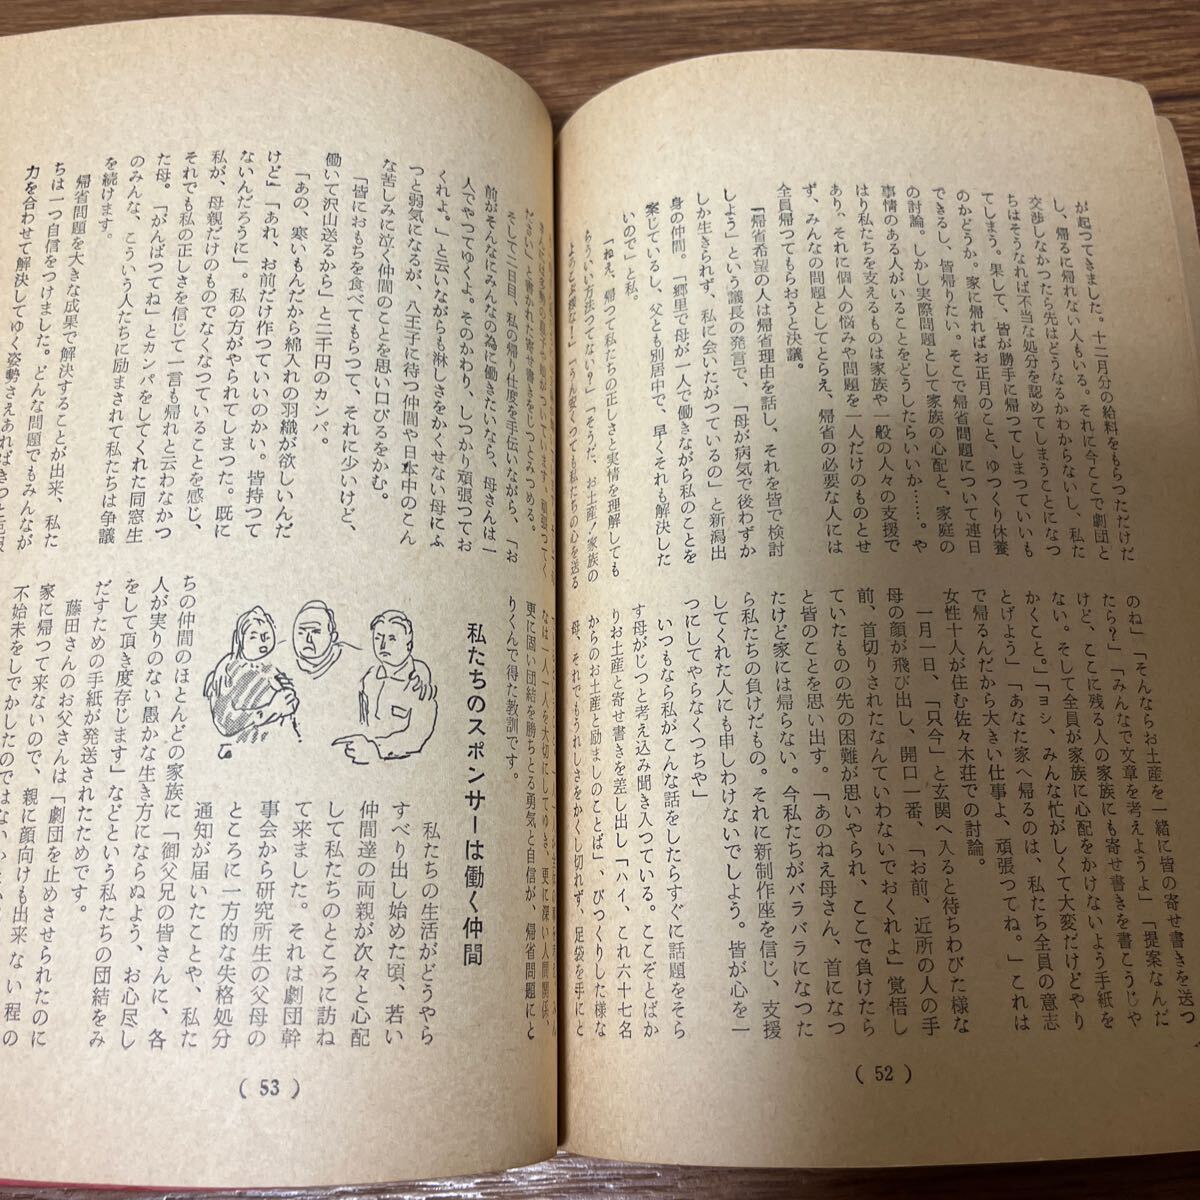 が起つてきました。十二月分の給料をもらつただけだ
し、帰るに帰れない人もいる。それに今ここで劇団と
交渉しなかつたら先はどうなるかわからないし、私た
ちはそうなれば不当な処分を認めてしまうことになつ
てしまう。果して、皆が勝手に帰つてしまつていいも
のかどうか。家に帰ればお正月のこと、ゆつくり休養
できるし、皆帰りたい。そこで帰省問題について連日
の討論。しかし実際問題として家族の心配と、家庭の
事情のある人がいることをどうしたらいいか……。や
はり私たちを支えるものは家族や一般の人々の支援で
あり、それに個人の悩みや問題を一人だけのものとせ
ず、みんなの問題としてとらえ、帰省の必要な人には
全員帰つてもらおうと決議。
「帰省希望の人は帰省理由を話し、それを皆で検討
しよう」という議長の発言で、「母が病気で後わずか
しか生きられず、私に会いたがつているの」と新潟出
身の仲間。「郷里で母が一人で働きながら私のことを
案じているし、父とも別居中で、早くそれも解決した
いので」と私。
「ねえ、帰つて私たちの正しさと実情を理解しても
らう、いい方法つてない?」「そうだ、お土産!家族の
よろこぶ様な!」「うん安くつても私たちの心を送る
のね」「そんならお土産を一緒に皆の寄せ書きを送つ
たら?」「みんなで文章を考えようよ」「提案なんだ
けど、ここに残る人の家族にも寄せ書きを書こうじや
ない。そして全員が家族に心配をかけないよう手紙を
かくこと。」「ヨシ、みんな忙がしくて大変だけどやり
とげよう」「あなた家へ帰るのは、私たち全員の意志
で帰るんだから大きい仕事よ、頑張つてね。」これは
女性十人が住む佐々木荘での討論。
一月一日、「只今」と玄関へ入ると待ちわびた様な
母の顔が飛び出し、開口一番、「お前、近所の人の手
前、首切りされたなんていわないでおくれよ」覚悟し
ていたものの先の困難が思いやられ、ここで負けたら
と皆のことを思い出す。「あのねえ母さん、首になつ
たけど家には帰らない。今私たちがバラバラになつた
ら私たちの負けだもの。それに新制作座を信じ、支援
してくれた人にも申しわけないでしよう。皆が心を一
つにしてやらなくつちや」
いつもなら私がこんな話をしたらすぐに話題をそら
す母がじつと考え込み聞き入つている。ここぞとばか
りお土産と寄せ書きを差し出し「ハイ、これ六十七名
からのお土産と励ましのことば」、びつくりした様な
母、それでもうれしさをかくし切れず、足袋を手にと
( 52 )
ださい」と書かれた寄せ書きをじつとみつめる。
そして二日目、私の帰り仕度を手伝いながら、「お
前がそんなにみんなの為に働きたいなら、母さんは一
人でやつてゆくよ。そのかわり、しつかり頑張つてお
くれよ。」と云いながらも淋しさをかくせない母にふ
つと弱気になるが、八王子に待つ仲間や日本中のこん
な苦しみに泣く仲間のことを思い口びるをかむ。
「皆におもちを食べてもらつて、それに少いけど、
働いて沢山送るから」と二千円のカンパ。
「あの、寒いもんだから綿入れの羽織が欲しいんだ
けど」「あれ、お前だけ作つていいのかい。皆持つて
ないんだろうに」。私の方がやられてしまつた。既に
私が、母親だけのものでなくなつていることを感じ、
それでも私の正しさを信じて一言も帰れと云わなかつ
た母。「がんばつてね」とカンパをしてくれた同窓生
のみんな、こういう人たちに励まされて私たちは争議
を続けます。
帰省問題を大きな成果で解決することが出来、私た
ちは一つ自信をつけました。どんな問題でもみんなが
力を合わせて解決してゆく姿勢さえあればきつと
なは一人一人を大切にしてゆき、更に深い人間関係、
更に固い団結を勝ちとる勇気と自信が、帰省問題にと
りくんで得た教訓です。
私たちのスポンサーは働く仲間
私たちの生活がどうやら
すべり出し始めた頃、若い
仲間達の両親が次々と心配
して私たちのところに訪ね
て来ました。それは劇団幹
事会から研究所生の父母の
ところに一方的な失格処分
通知が届いたことや、私た
ちの仲間のほとんどの家族に「御父兄の皆さんに、各
人が実りのない愚かな生き方にならぬよう、お心尽し
をして頂き度存じます」などという私たちの団結をみ
だすための手紙が発送されたためです。
藤田さんのお父さんは「劇団を止めさせられたのに
家に帰つて来ないので、親に顔向けも出来ない程の
不始末をしでかしたのではないか
( 53 )